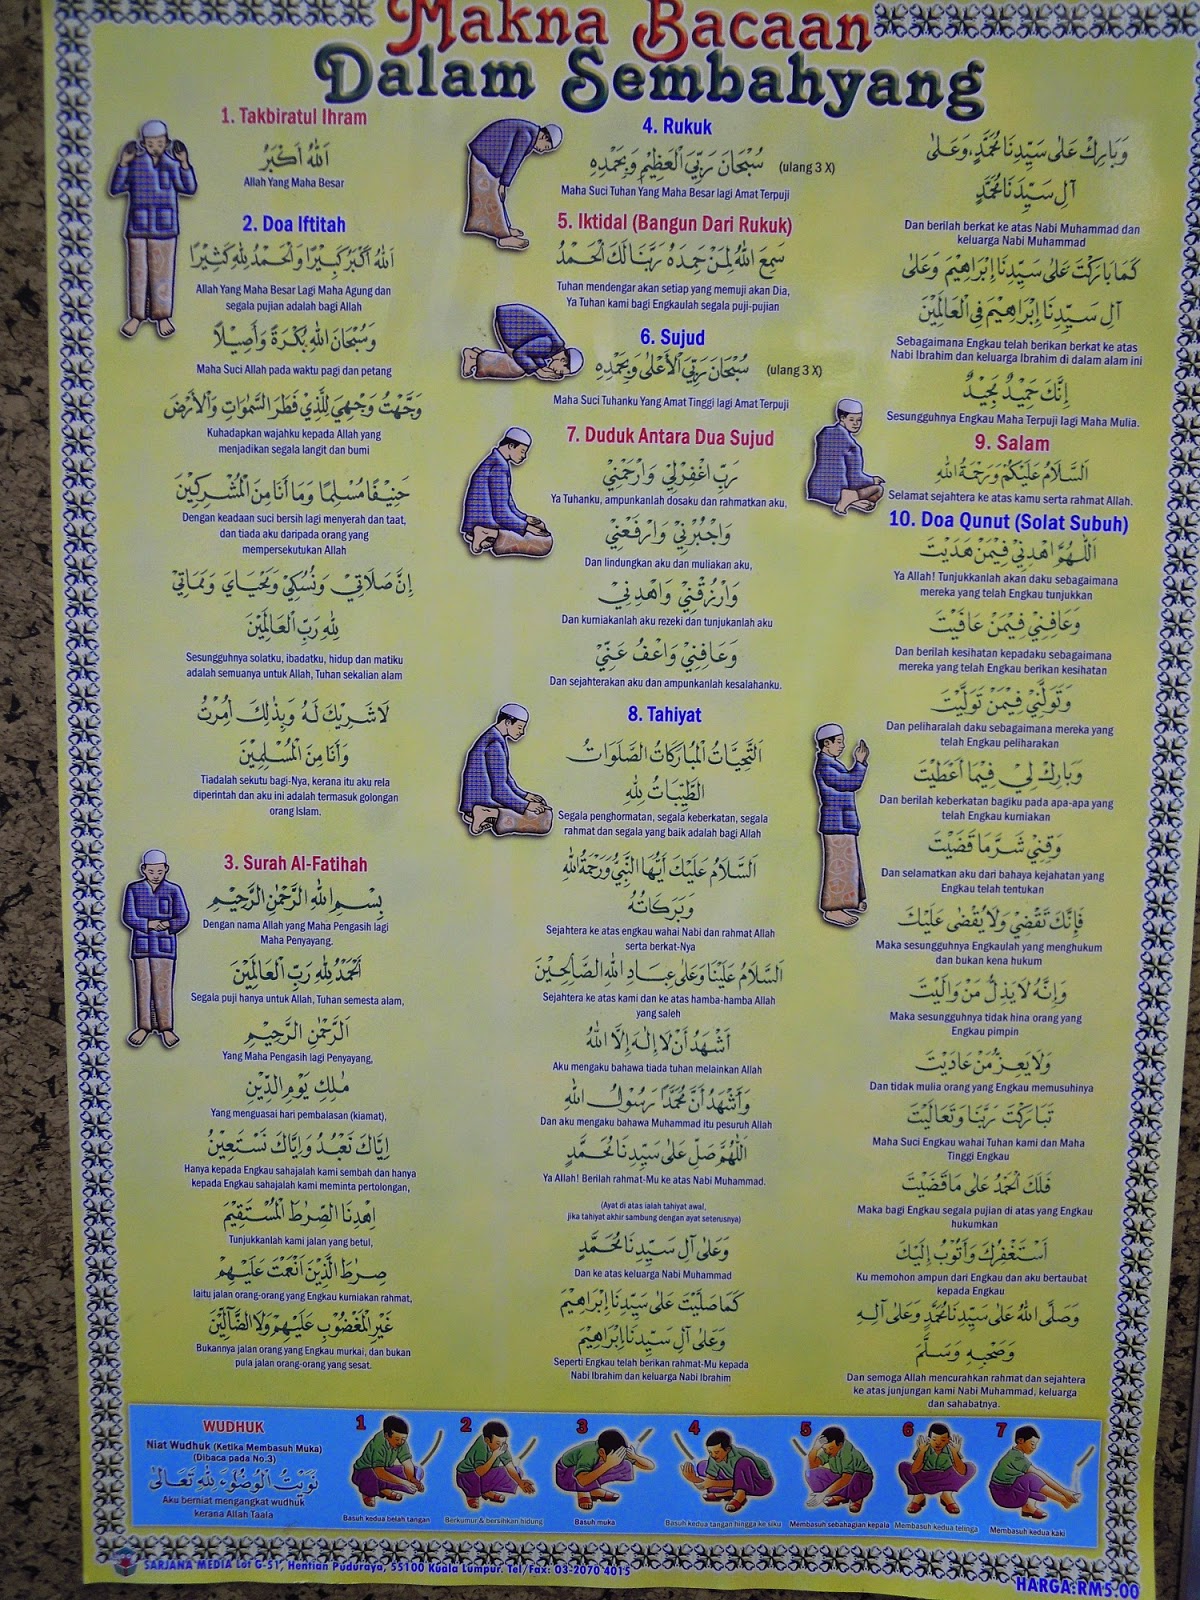 Makna Bacaan
Dalam Sembahyang
1. Takbiratul Ihram
اَللهُ اَكْبَرُ
Allah Yang Maha Besar
2. Doa Iftitah
اَللهُ اَكْبَرُ كَبِيْرًا وَالْحَمْدُ لِلّٰهِ كَثِيْرًا
Allah Yang Maha Besar Lagi Maha Agung dan
segala pujian adalah bagi Allah
وَسُبْحَانَ اللهِ بُكْرَةً وَأَصِيْلاً
Maha Suci Allah pada waktu pagi dan petang
وَجَّهْتُ وَجْهِيَ لِلَّذِيْ فَطَرَ السَّمٰوَاتِ وَالْأَرْضَ
Kuhadapkan wajahku kepada Allah yang
menjadikan segala langit dan bumi
حَنِيْفًا مُسْلِمًا وَمَا أَنَا مِنَ الْمُشْرِكِيْنَ
Dengan keadaan suci bersih lagi menyerah dan taat,
dan tiada aku daripada orang yang
mempersekutukan Allah
إِنَّ صَلَاتِيْ وَنُسُكِيْ وَمَحْيَايَ وَمَمَاتِيْ
لِلّٰهِ رَبِّ الْعَالَمِيْنَ
Sesungguhnya solatku, ibadatku, hidup dan matiku
adalah semuanya untuk Allah, Tuhan sekalian alam
لَا شَرِيْكَ لَهُ وَبِذٰلِكَ أُمِرْتُ
وَأَنَا مِنَ الْمُسْلِمِيْنَ
Tiadalah sekutu bagi-Nya, kerana itu aku rela
diperintah dan aku ini adalah termasuk golongan
orang Islam.
3. Surah Al-Fatihah
بِسْمِ اللهِ الرَّحْمٰنِ الرَّحِيْمِ
Dengan nama Allah yang Maha Pengasih lagi
Maha Penyayang.
اَلْحَمْدُ لِلّٰهِ رَبِّ الْعَالَمِيْنَ
Segala puji hanya untuk Allah, Tuhan semesta alam,
اَلرَّحْمٰنِ الرَّحِيْمِ
Yang Maha Pengasih lagi Penyayang,
مٰلِكِ يَوْمِ الدِّيْنِ
Yang menguasai hari pembalasan (kiamat),
إِيَّاكَ نَعْبُدُ وَإِيَّاكَ نَسْتَعِيْنُ
Hanya kepada Engkau sahajalah kami sembah dan hanya
kepada Engkau sahajalah kami meminta pertolongan,
اِهْدِنَا الصِّرَاطَ الْمُسْتَقِيْمَ
Tunjukkanlah kami jalan yang betul,
صِرَاطَ الَّذِيْنَ أَنْعَمْتَ عَلَيْهِمْ
Iaitu jalan orang-orang yang Engkau kurniakan rahmat,
غَيْرِ الْمَغْضُوْبِ عَلَيْهِمْ وَلَا الضَّآلِّيْنَ
Bukannya jalan orang yang Engkau murkai, dan bukan
pula jalan orang-orang yang sesat.
4. Rukuk
سُبْحَانَ رَبِّيَ الْعَظِيْمِ وَبِحَمْدِهِ (ulang 3 X)
Maha Suci Tuhan Yang Maha Besar lagi Amat Terpuji
5. Iktidal (Bangun Dari Rukuk)
سَمِعَ اللهُ لِمَنْ حَمِدَهُ رَبَّنَا لَكَ الْحَمْدُ
Tuhan mendengar akan setiap yang memuji akan Dia,
Ya Tuhan kami bagi Engkaulah segala puji-pujian
6. Sujud
سُبْحَانَ رَبِّيَ الْأَعْلَى وَبِحَمْدِهِ (ulang 3 X)
Maha Suci Tuhanku Yang Amat Tinggi lagi Amat Terpuji
7. Duduk Antara Dua Sujud
رَبِّ اغْفِرْلِيْ وَارْحَمْنِيْ
Ya Tuhanku, ampunkanlah dosaku dan rahmatkan aku,
وَاجْبُرْنِيْ وَارْفَعْنِيْ
Dan lindungkan aku dan muliakan aku,
وَارْزُقْنِيْ وَاهْدِنِيْ
Dan kurniakanlah aku rezeki dan tunjukanlah aku
وَعَافِنِيْ وَاعْفُ عَنِّيْ
Dan sejahterakan aku dan ampunkanlah kesalahanku.
8. Tahiyat
اَلتَّحِيَّاتُ الْمُبَارَكَاتُ الصَّلَوَاتُ
الطَّيِّبَاتُ لِلّٰهِ
Segala penghormatan, segala keberkatan, segala
rahmat dan segala yang baik adalah bagi Allah
اَلسَّلَامُ عَلَيْكَ أَيُّهَا النَّبِيُّ وَرَحْمَةُ اللهِ
وَبَرَكَاتُهُ
Sejahtera ke atas engkau wahai Nabi dan rahmat Allah
serta berkat-Nya
اَلسَّلَامُ عَلَيْنَا وَعَلَى عِبَادِ اللهِ الصَّالِحِيْنَ
Sejahtera ke atas kami dan ke atas hamba-hamba Allah
yang saleh
أَشْهَدُ أَنْ لَا إِلٰهَ إِلَّا اللهُ
Aku mengaku bahawa tiada tuhan melainkan Allah
وَأَشْهَدُ أَنَّ مُحَمَّدًا رَسُوْلُ اللهِ
Dan aku mengaku bahawa Muhammad itu pesuruh Allah
اَللّٰهُمَّ صَلِّ عَلَى سَيِّدِنَا مُحَمَّدٍ
Ya Allah! Berilah rahmat-Mu ke atas Nabi Muhammad.
(Ayat di atas ialah tahiyat awal,
jika tahiyat akhir sambung dengan ayat seterusnya)
وَعَلَى آلِ سَيِّدِنَا مُحَمَّدٍ
Dan ke atas keluarga Nabi Muhammad
كَمَا صَلَّيْتَ عَلَى سَيِّدِنَا إِبْرَاهِيْمَ
وَعَلَى آلِ سَيِّدِنَا إِبْرَاهِيْمَ
Seperti Engkau telah berikan rahmat-Mu kepada
Nabi Ibrahim dan keluarga Nabi Ibrahim
وَبَارِكْ عَلَى سَيِّدِنَا مُحَمَّدٍ، وَعَلَى
آلِ سَيِّدِنَا مُحَمَّدٍ
Dan berilah berkat ke atas Nabi Muhammad dan
keluarga Nabi Muhammad
كَمَا بَارَكْتَ عَلَى سَيِّدِنَا إِبْرَاهِيْمَ وَعَلَى
آلِ سَيِّدِنَا إِبْرَاهِيْمَ فِي الْعَالَمِيْنَ
Sebagaimana Engkau telah berikan berkat ke atas
Nabi Ibrahim dan keluarga Ibrahim di dalam alam ini
إِنَّكَ حَمِيْدٌ مَجِيْدٌ
Sesungguhnya Engkau Maha Terpuji lagi Maha Mulia.
9. Salam
اَلسَّلَامُ عَلَيْكُمْ وَرَحْمَةُ اللهِ
Selamat sejahtera ke atas kamu serta rahmat Allah.
10. Doa Qunut (Solat Subuh)
اَللّٰهُمَّ اهْدِنِيْ فِيْمَنْ هَدَيْتَ
Ya Allah! Tunjukkanlah akan daku sebagaimana
mereka yang telah Engkau tunjukkan
وَعَافِنِيْ فِيْمَنْ عَافَيْتَ
Dan berilah kesihatan kepadaku sebagaimana
mereka yang telah Engkau berikan kesihatan
وَتَوَلَّنِيْ فِيْمَنْ تَوَلَّيْتَ
Dan peliharalah daku sebagaimana mereka yang
telah Engkau peliharakan
وَبَارِكْ لِيْ فِيْمَا أَعْطَيْتَ
Dan berilah keberkatan bagiku pada apa-apa yang
telah Engkau kurniakan
وَقِنِيْ شَرَّ مَا قَضَيْتَ
Dan selamatkan aku dari bahaya kejahatan yang
Engkau telah tentukan
فَإِنَّكَ تَقْضِيْ وَلَا يُقْضَى عَلَيْكَ
Maka sesungguhnya Engkaulah yang menghukum
dan bukan kena hukum
وَإِنَّهُ لَا يَذِلُّ مَنْ وَالَيْتَ
Maka sesungguhnya tidak hina orang yang
Engkau pimpin
وَلَا يَعِزُّ مَنْ عَادَيْتَ
Dan tidak mulia orang yang Engkau memusuhinya
تَبَارَكْتَ رَبَّنَا وَتَعَالَيْتَ
Maha Suci Engkau wahai Tuhan kami dan Maha
Tinggi Engkau
فَلَكَ الْحَمْدُ عَلَى مَا قَضَيْتَ
Maka bagi Engkau segala pujian di atas yang Engkau
hukumkan
أَسْتَغْفِرُكَ وَأَتُوْبُ إِلَيْكَ
Ku memohon ampun dari Engkau dan aku bertaubat
kepada Engkau
وَصَلَّى اللهُ عَلَى سَيِّدِنَا مُحَمَّدٍ وَعَلَى آلِهِ
وَصَحْبِهِ وَسَلَّمَ
Dan semoga Allah mencurahkan rahmat dan sejahtera
ke atas junjungan kami Nabi Muhammad, keluarga
dan sahabatnya.
WUDHUK
Niat Wudhuk (Ketika Membasuh Muka)
(Dibaca pada No.3)
نَوَيْتُ الْوُضُوْءَ لِلّٰهِ تَعَالَى
Aku berniat mengangkat wudhuk
kerana Allah Taala
1
Basuh kedua belah tangan
2
Berkumur & bersihkan hidung
3
Basuh muka
4
Basuh kedua tangan hingga ke siku
5
Membasuh sebahagian kepala
6
Membasuh kedua telinga
7
Membasuh kedua kaki
SARJANA MEDIA Lot G-51, Hentian Puduraya, 55100 Kuala Lumpur. Tel/Fax: 03-2070 4015
HARGA:RM5.00